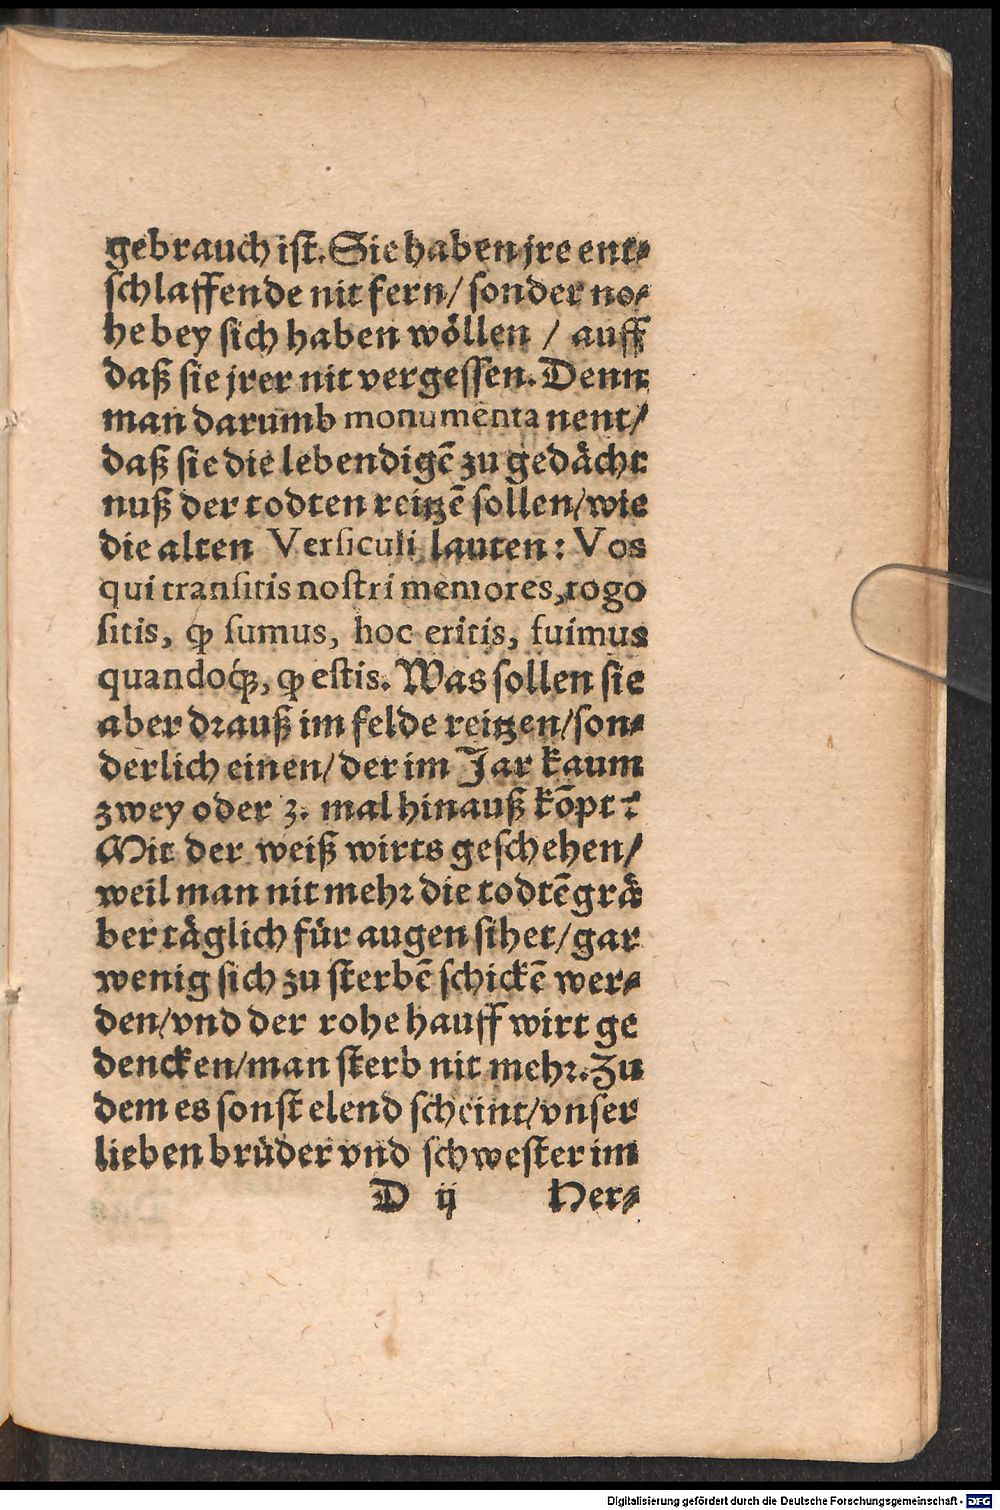 gebrauch ist. Sie haben jre ent⸗
schlaffende nit fern/ sonder no⸗
he bey sich haben wöllen / auff
daß sie jrer nit vergessen. Denn
man darumb monumenta nent/
daß sie die lebendigē zu gedächt
nuß der todten reitzē sollen/wie
die alten Versiculi lauten: Vos
qui transitis nostri memores, rogo
sitis, qꝫ sumus, hoc eritis, fuimus
quandoqꝫ, qꝫ estis. Was sollen sie
aber drauß im felde reitzen/son⸗
derlich einen/der im Jar kaum
zwey oder 3. mal hinauß kōpt?
Mit der weiß wirts geschehen/
weil man nit mehr die todtēgrä
ber täglich für augen sihet/gar
wenig sich zu sterbē schickē wer⸗
den/vnd der rohe hauff wirt ge
dencken/man sterb nit mehr. Zu
dem es sonst elend scheint/vnser
lieben brüder vnd schwester im
D ij Her⸗
Digitalisierung gefördert durch die Deutsche Forschungsgemeinschaft - DFG